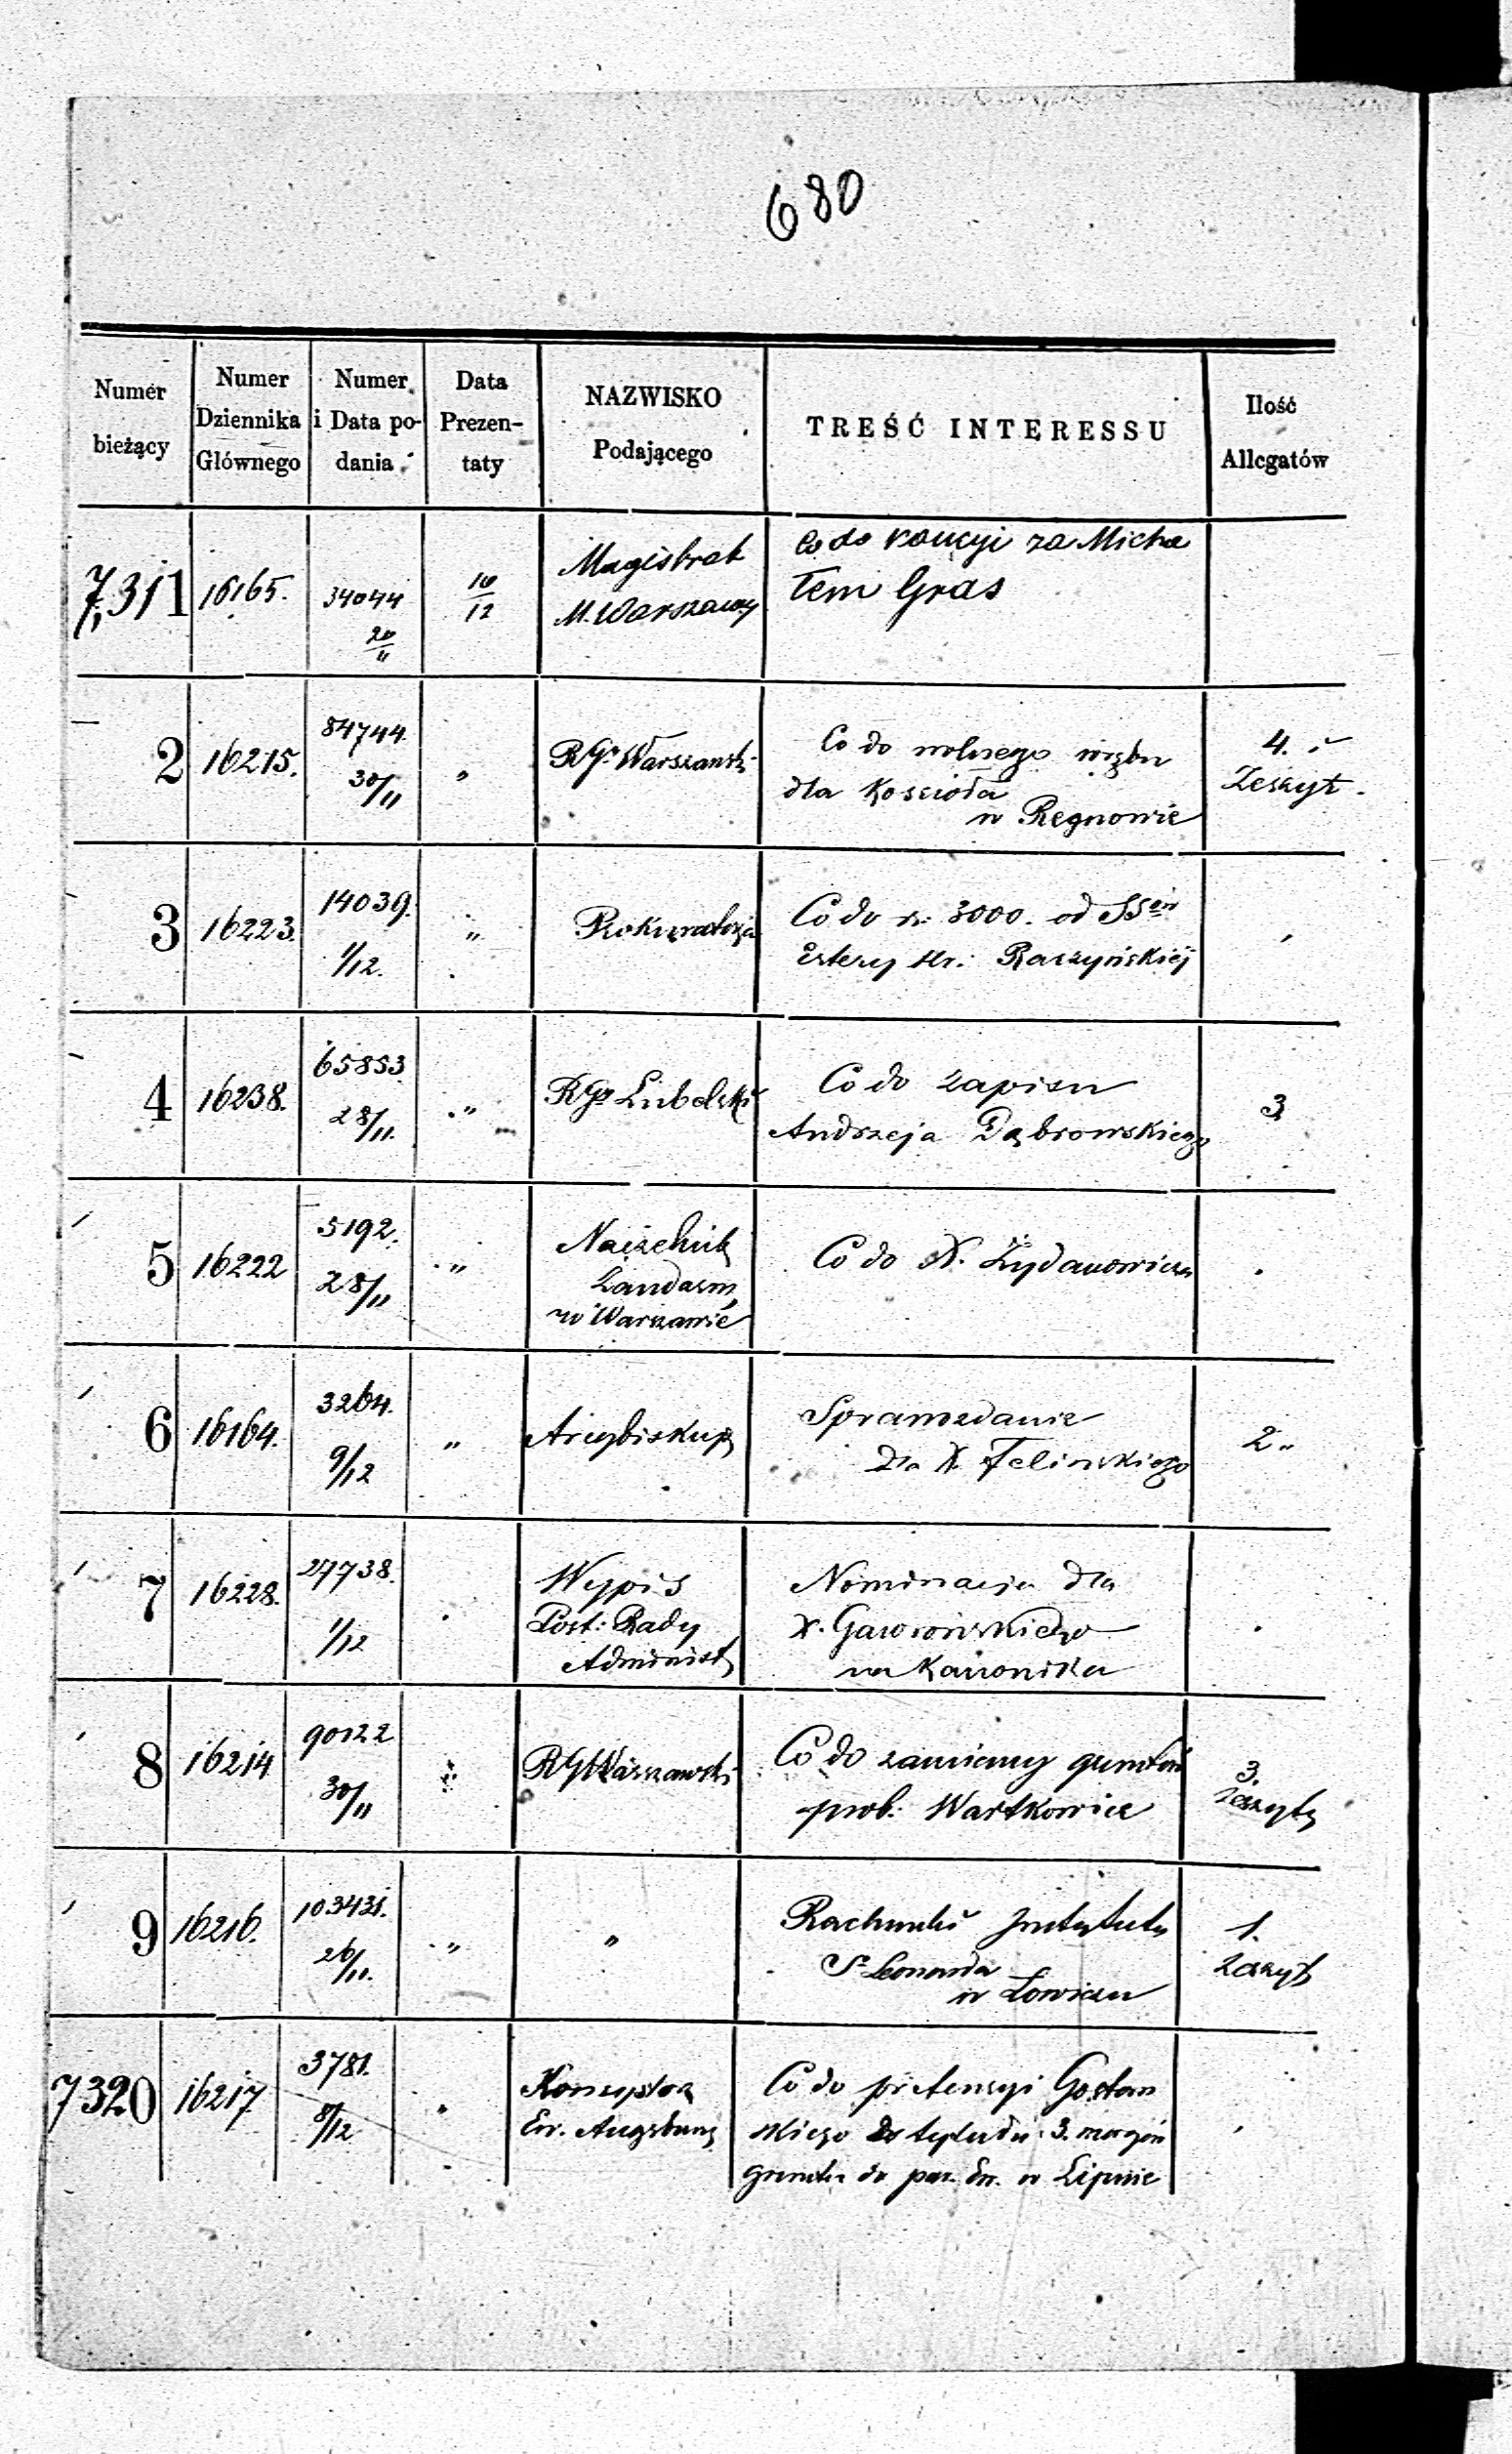 680
Numer bieżący | Numer Dziennika Głównego | Numer i Data podania | Data Prezentaty | NAZWISKO Podającego | TREŚĆ INTERESSU | Ilość Allegatów
7,311 | 16165. | 34044 20/11 | 10/12 | Magistrat M. Warszawy | Co do kaucyi za Micha
łem Gras
2 | 16215. | 84744 30/11 | " | RGr Warszawsk. | Co do wolnego wrębu | 4.
dla Kościoła | Zeszyt.
w Regnowie
3 | 16223. | 14039. 1/12. | " | Prokuratorja | Co do r. 3000. od SSów
Estery Raczyńskiéj
4 | 16238. | 65853 28/11. | " | RGr Lubelski | Co do zapisu | 3
Andrzeja Dąbrowskiego
5 | 16222 | 5192. 28/11 | " | Naczelnik | Co do X. Żydanowicza
Żandarm
w Warszawie
6 | 16164. | 3264. 9/12 | " | Arcybiskup | Sprawozdanie | 2"
dla X. Felińskiego
7 | 16228. | 27738. 1/12 | Wypis | Nominacja dla
Post: Rady | X. Gawrońskiego
Administ | na Kanonika
8 | 16214 | 90122 30/11 | " | RG Warszawski | Co do zamiany gruntów | 3.
prob. Wartkowice | Zeszyty
9 | 16216. | 103431. 26/11. | " | " | Rachunki Instytutu | 1.
St Leonarda | Zeszyt
w Łowiczu
7320 | 16217 | 3781. 8/12 | " | Konsystorz | Co do pretensyi Gostom
Ew. Augsburg | skiego do tytułu 3. morgów
gruntu do par. Ew. w Lipnie